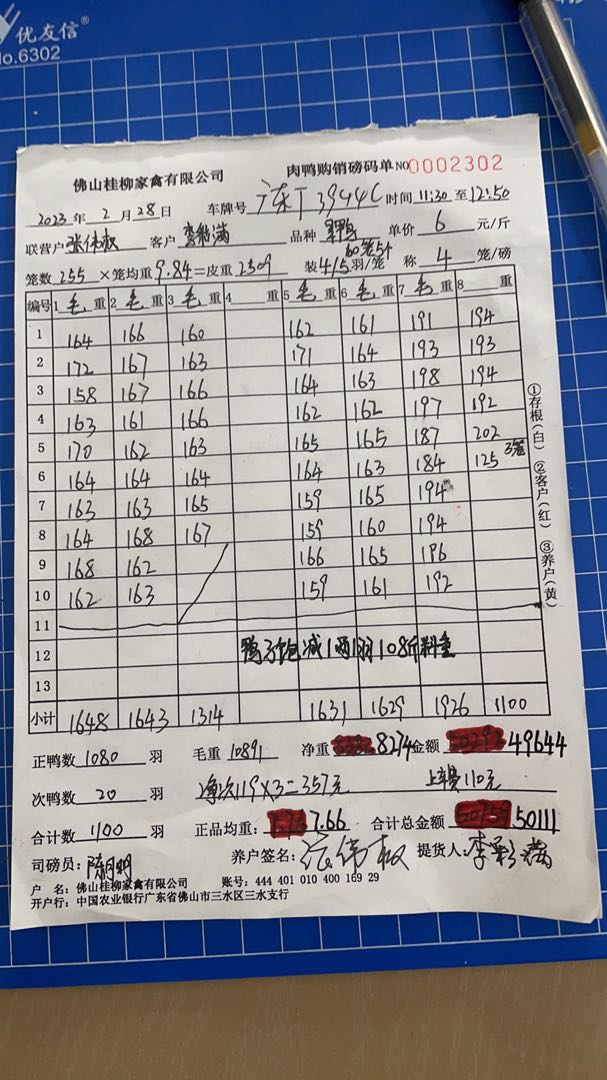 优友信
No.6302
佛山桂柳家禽有限公司 肉鸭购销磅码单 NO 0002302
2023年 2月 28日 车牌号 广东J3944C 时间 11:30 至 12:50
联营户 张伟权 客户 品种 单价 6 元/斤
60笼5只
笼数 255 ×笼均重 9.84 =皮重 2509 装 4/5 羽/笼 称 4 笼/磅
编号 1 毛重 2 毛重 3 毛重 4 重 5 毛重 6 毛重 7 毛重 8 重
1 164 166 160 162 161 191 194
2 172 167 163 171 164 193 193
3 158 167 166 164 163 198 194
4 163 161 166 162 162 197 192
5 170 162 163 165 165 187 202
6 164 164 164 164 163 184 125 3笼
7 163 163 165 159 165 194
8 164 168 167 159 160 194
9 168 162 166 165 196
10 162 163 159 161 192
11
12 鸭子饱减1两1羽108斤料重
13
小计 1648 1643 1314 1631 1629 1926 1100
正鸭数 1080 羽 毛重 10891 净重 8274 金额 49644
次鸭数 20 羽 净次119×3=357元 上车费110元
合计数 1100 羽 正品均重: 7.66 合计总金额 50111
司磅员: 陈明 养户签名: 张伟权 提货人:
户 名: 佛山桂柳家禽有限公司 账号: 444 401 010 400 169 29
开户行: 中国农业银行广东省佛山市三水区三水支行
①存根(白) ②客户(红) ③养户(黄)